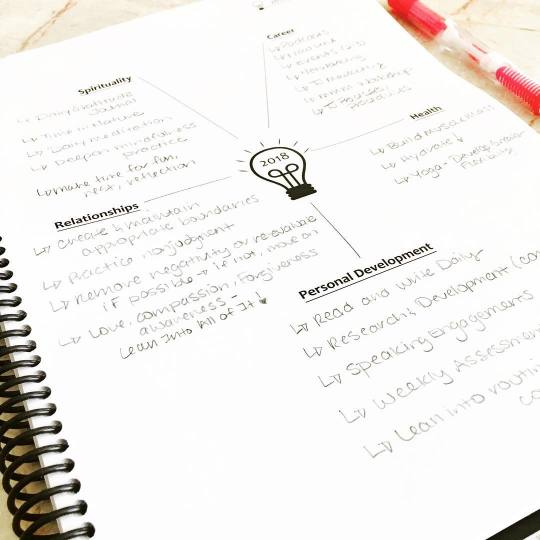 Spirituality
↳ Daily Gratitude
Journal
↳ Time in Nature
↳ Daily meditation
↳ Deepen mindfulness
practice
↳ make time for fun,
rest, reflection
Career
↳ Podcasts
↳ events
Health
↳ Build muscle mass
↳ Hydrate
↳ Yoga - Develop
2018
Relationships
↳ create & maintain
appropriate boundaries
↳ Practice nonjudgment
↳ Remove negativity or re-evaluate
if possible → if not, move on
↳ Love, compassion, Forgiveness
awareness -
Lean into All of It!
Personal Development
↳ Read and write Daily
↳ Research & Development
↳ Speaking Engagements
↳ Weekly
↳ Lean into